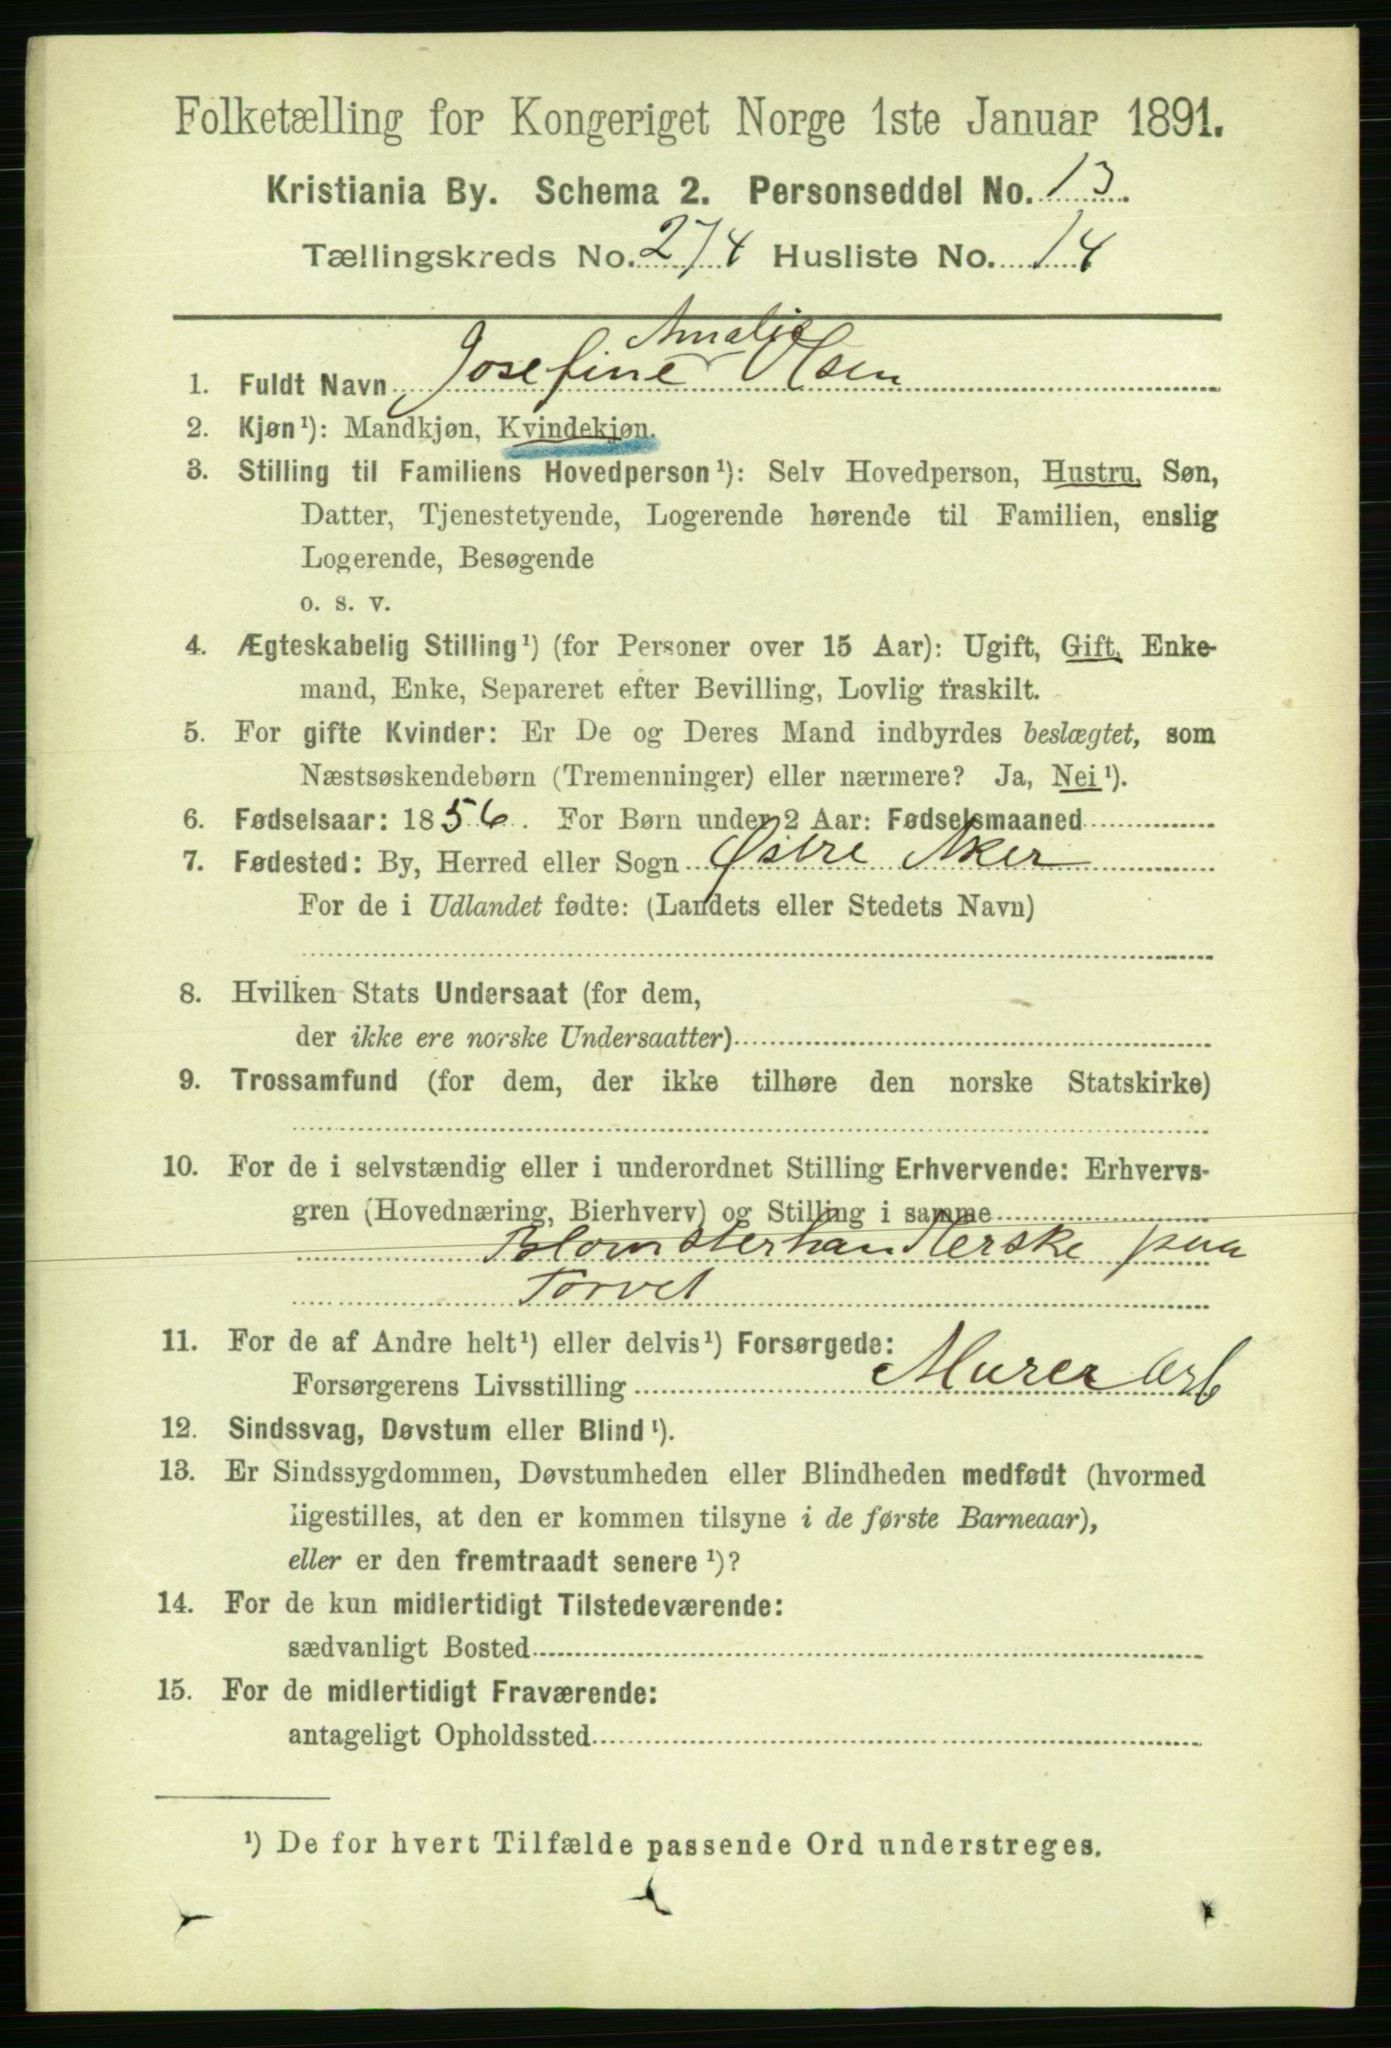 Folketælling for Kongeriget Norge 1ste Januar 1891.
Kristiania By. Schema 2. Personseddel No. 13.
Tællingskreds No. 274 Husliste No. 14
Amalie
1. Fuldt Navn Josefine Olsen
2. Kjøn¹): Mandkjøn, Kvindekjøn.
3. Stilling til Familiens Hovedperson¹): Selv Hovedperson, Hustru, Søn,
Datter, Tjenestetyende, Logerende hørende til Familien, enslig
Logerende, Besøgende
o. s. v.
4. Ægteskabelig Stilling¹) (for Personer over 15 Aar): Ugift, Gift, Enke-
mand, Enke, Separeret efter Bevilling, Lovlig fraskilt.
5. For gifte Kvinder: Er De og Deres Mand indbyrdes beslægtet, som
Næstsøskendebørn (Tremenninger) eller nærmere? Ja, Nei¹).
6. Fødselsaar: 1856. For Børn under 2 Aar: Fødselsmaaned
7. Fødested: By, Herred eller Sogn Østre Aker
For de i Udlandet fødte: (Landets eller Stedets Navn)
8. Hvilken Stats Undersaat (for dem,
der ikke ere norske Undersaatter)
9. Trossamfund (for dem, der ikke tilhøre den norske Statskirke)
10. For de i selvstændig eller i underordnet Stilling Erhvervende: Erhvervs-
gren (Hovednæring, Bierhverv) og Stilling i samme
Blomsterhandlerske paa
Torvet
11. For de af Andre helt¹) eller delvis¹) Forsørgede:
Forsørgerens Livsstilling Murer Arb
12. Sindssvag, Døvstum eller Blind¹).
13. Er Sindssygdommen, Døvstumheden eller Blindheden medfødt (hvormed
ligestilles, at den er kommen tilsyne i de første Barneaar),
eller er den fremtraadt senere¹)?
14. For de kun midlertidigt Tilstedeværende:
sædvanligt Bosted
15. For de midlertidigt Fraværende:
antageligt Opholdssted
¹) De for hvert Tilfælde passende Ord understreges.